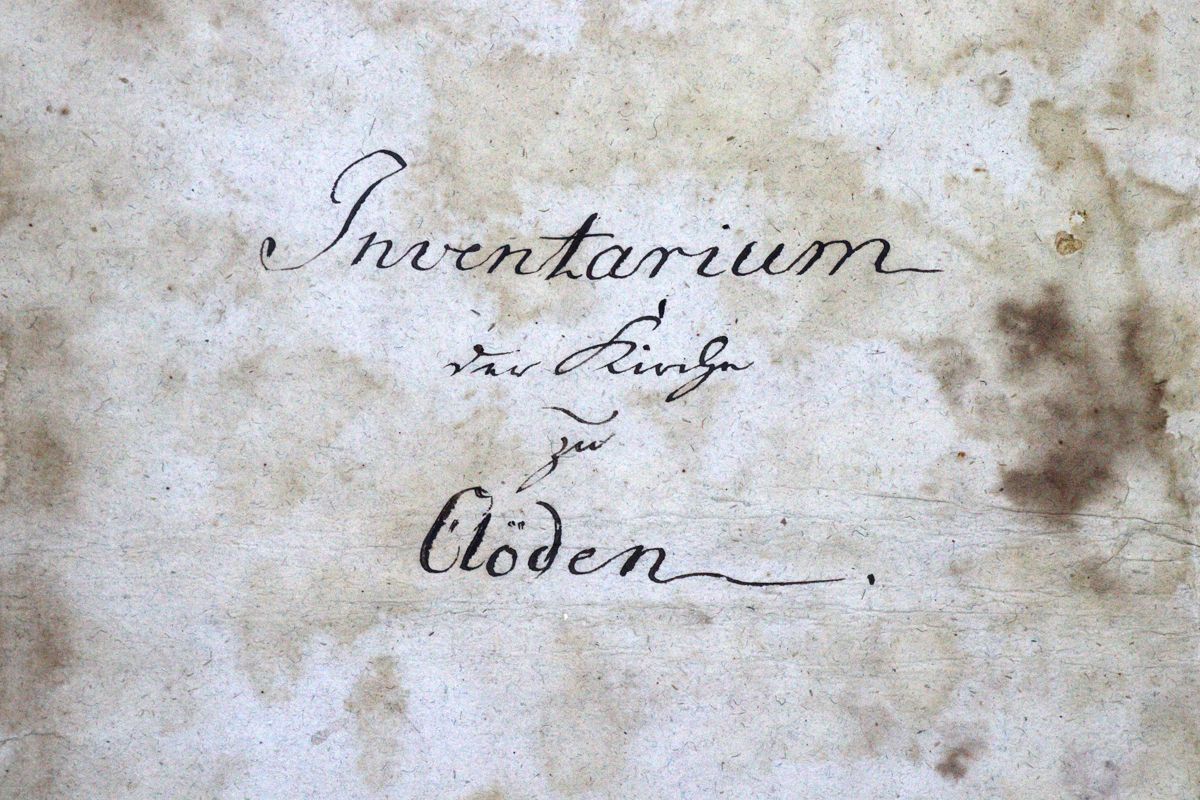 Inventarium
der Kirche
zu
Clöden.